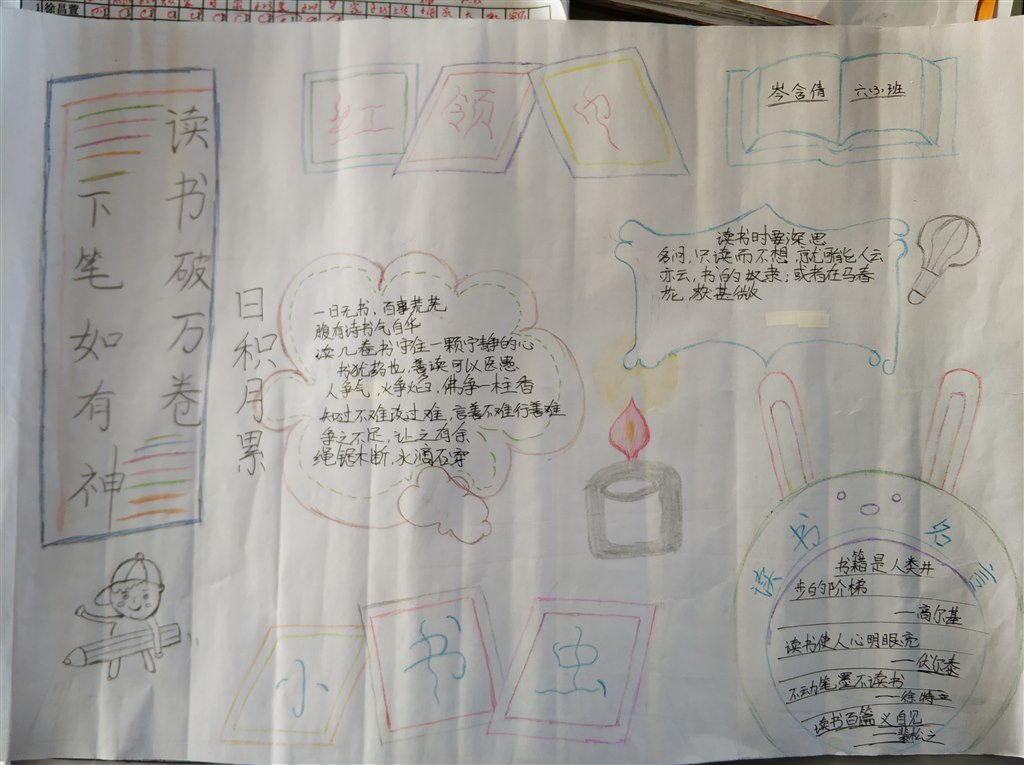 徐昌萱
读书破万卷
下笔如有神
红领巾
岑含倩 六(3)班
读书时要深思
多问,只读而不想,就可能人云
亦云,书的奴隶;或者在马看
花,效甚微
日积月累
一日无书,百事荒芜
腹有诗书气自华
读几卷书守住一颗宁静的心
书犹药也,善读可以医愚
人争气,火争焰,佛争一柱香
知过不难改过难,言善不难行善难
争之不足,让之有余
绳锯木断,水滴石穿
读书名言
书籍是人类进
步的阶梯
—高尔基
读书使人心明眼亮
—伏尔泰
不动笔墨不读书
—徐特立
读书百篇义自见
—裴松之
小书虫